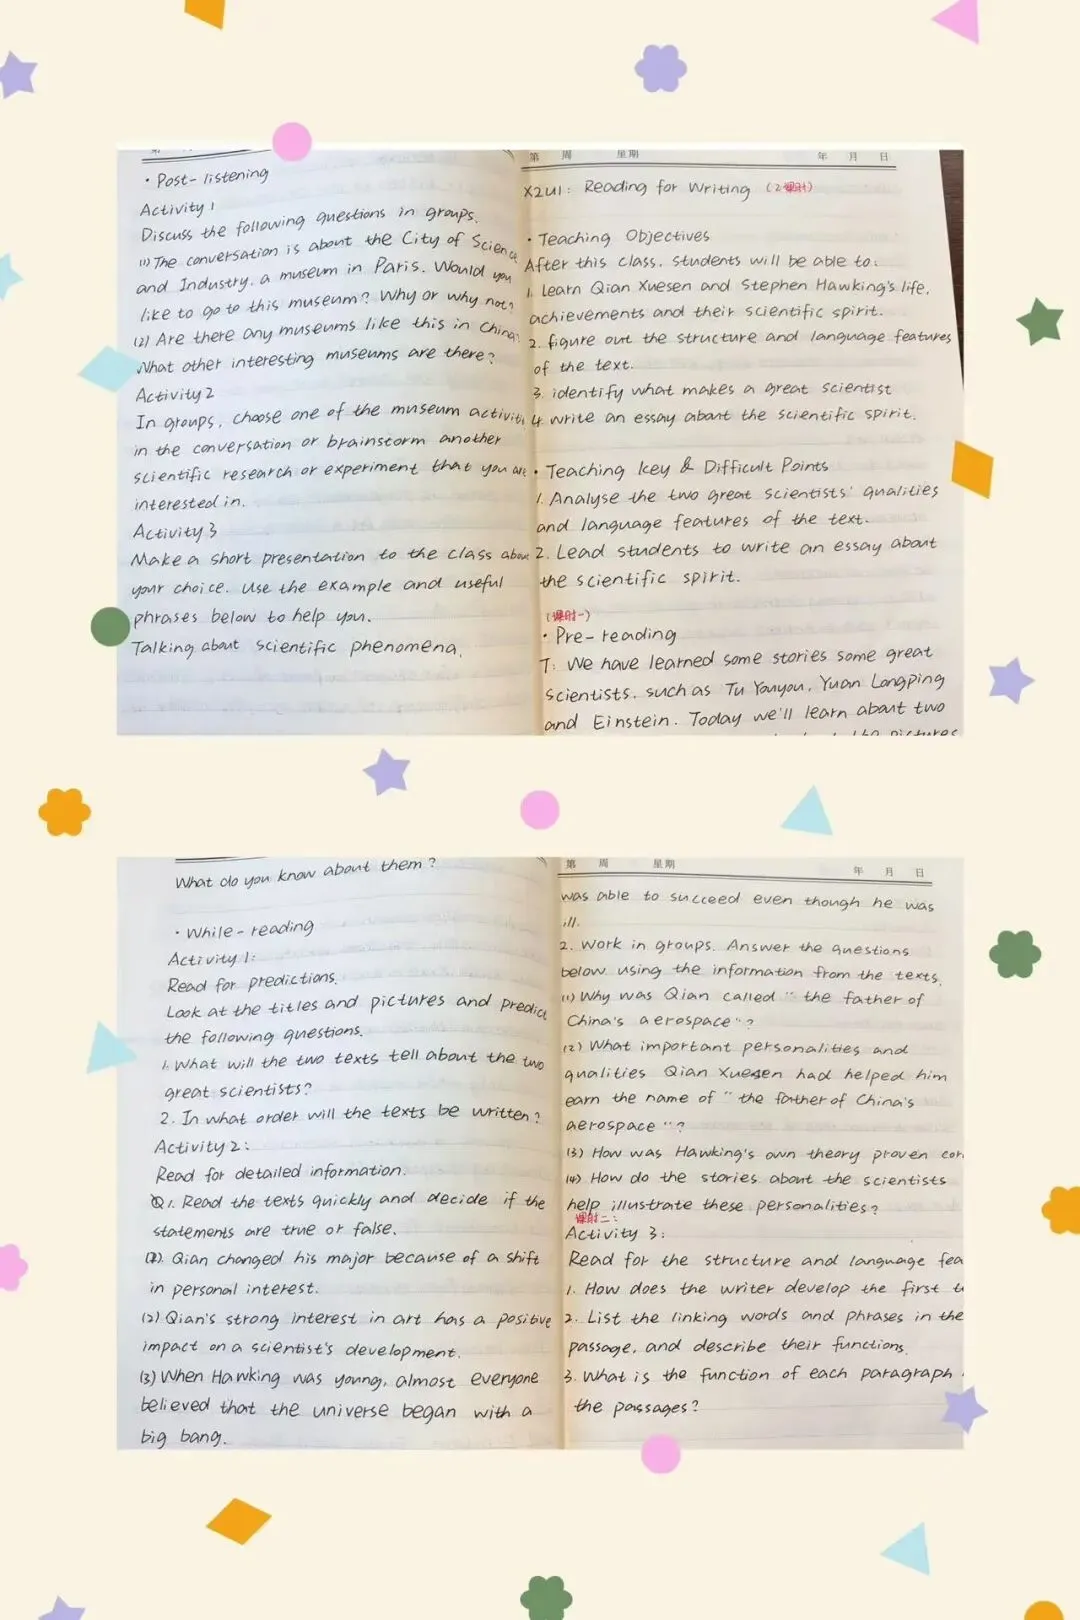 · Post-listening
Activity 1
Discuss the following questions in groups.
(1) The conversation is about the City of Science
and Industry, a museum in Paris. Would you
like to go to this museum? Why or why not?
(2) Are there any museums like this in China?
What other interesting museums are there?
Activity 2
In groups, choose one of the museum activiti
in the conversation or brainstorm another
scientific research or experiment that you are
interested in.
Activity 3
Make a short presentation to the class about
your choice. Use the example and useful
phrases below to help you.
Talking about scientific phenomena.
第 周 星期 年 月 日
X2U1: Reading for Writing (2课时)
· Teaching Objectives
After this class, students will be able to:
1. learn Qian Xuesen and Stephen Hawking's life,
achievements and their scientific spirit.
2. figure out the structure and language features
of the text.
3. identify what makes a great scientist
4. write an essay about the scientific spirit.
· Teaching key & Difficult Points
1. Analyse the two great scientists' qualities
and language features of the text.
2. Lead students to write an essay about
the scientific spirit.
(课时一)
· Pre-reading
T: We have learned some stories some great
scientists, such as Tu Youyou, Yuan Longping
and Einstein. Today we'll learn about two
the pictures
What do you know about them?
· While-reading
Activity 1:
Read for predictions.
Look at the titles and pictures and predict
the following questions.
1. What will the two texts tell about the two
great scientists?
2. In what order will the texts be written?
Activity 2:
Read for detailed information.
Q1. Read the texts quickly and decide if the
statements are true or false.
(1). Qian changed his major because of a shift
in personal interest.
(2) Qian's strong interest in art has a positive
impact on a scientist's development.
(3) When Hawking was young, almost everyone
believed that the universe began with a
big bang.
第 周 星期 年 月 日
was able to succeed even though he was
ill.
2. Work in groups. Answer the questions
below using the information from the texts.
(1) Why was Qian called "the father of
China's aerospace"?
(2) What important personalities and
qualities Qian Xuesen had helped him
earn the name of "the father of China's
aerospace"?
(3) How was Hawking's own theory proven cor
(4) How do the stories about the scientists
help illustrate these personalities?
课时二:
Activity 3:
Read for the structure and language fea
1. How does the writer develop the first t
2. List the linking words and phrases in the
passage, and describe their functions.
3. What is the function of each paragraph
the passages?